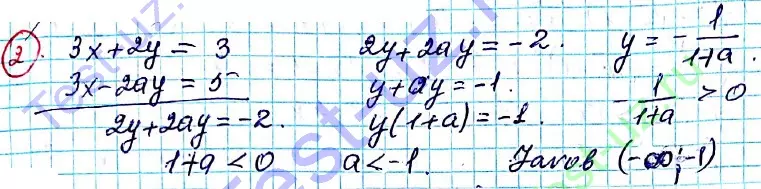 2. 3x+2y = 3 2y+2ay = -2. y = -1/(1+a).
3x-2ay = 5 y+ay = -1. -1/(1+a) > 0
2y+2ay = -2. y(1+a) = -1.
1+a < 0 a < -1. Javob (-∞; -1)